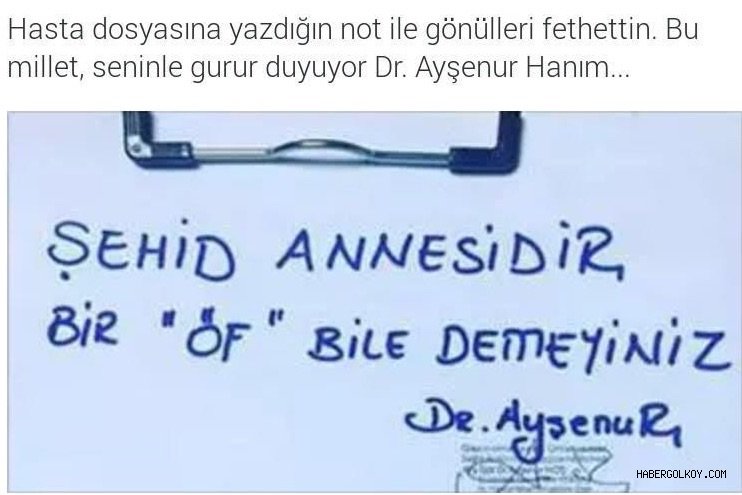 Hasta dosyasına yazdığın not ile gönülleri fethettin. Bu
millet, seninle gurur duyuyor Dr. Ayşenur Hanım...
ŞEHİD ANNESİDİR,
BİR "ÖF" BİLE DEMEYİNİZ
Dr. Ayşenur
HABERGOLKOY.COM